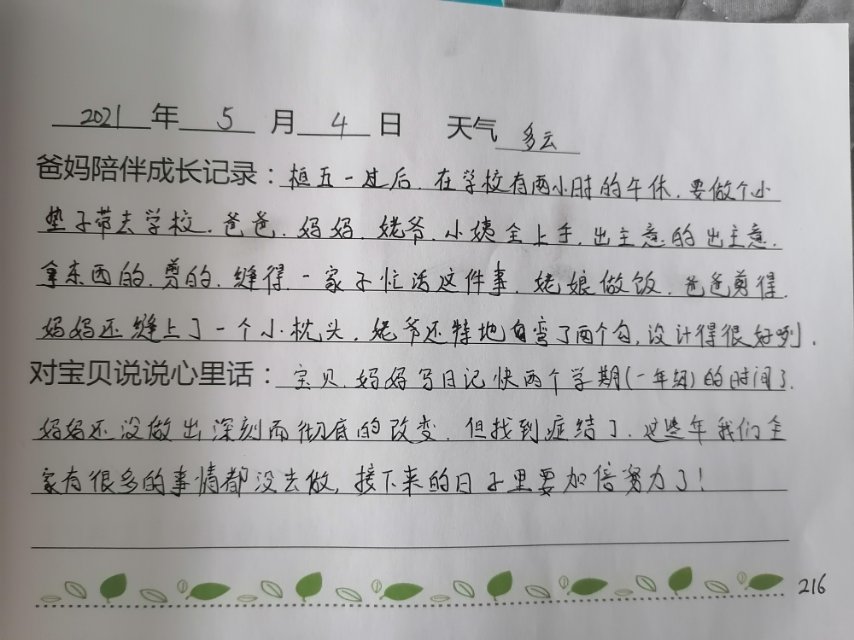 2021年5月4日 天气 多云
爸妈陪伴成长记录：桓五一过后，在学校有两小时的午休，要做个小
垫子带去学校，爸爸，妈妈，姥爷，小姨全上手，出主意的出主意，
拿东西的，剪的，缝得，一家子忙活这件事，姥娘做饭，爸爸剪得，
妈妈还缝上了一个小枕头，姥爷还特地自弯了两个勾，设计得很好咧，
对宝贝说说心里话：宝贝，妈妈写日记快两个学期（一年级）的时间了，
妈妈还没做出深刻而彻底的改变，但找到症结了，这些年我们全
家有很多的事情都没去做，接下来的日子里要加倍努力了！
216